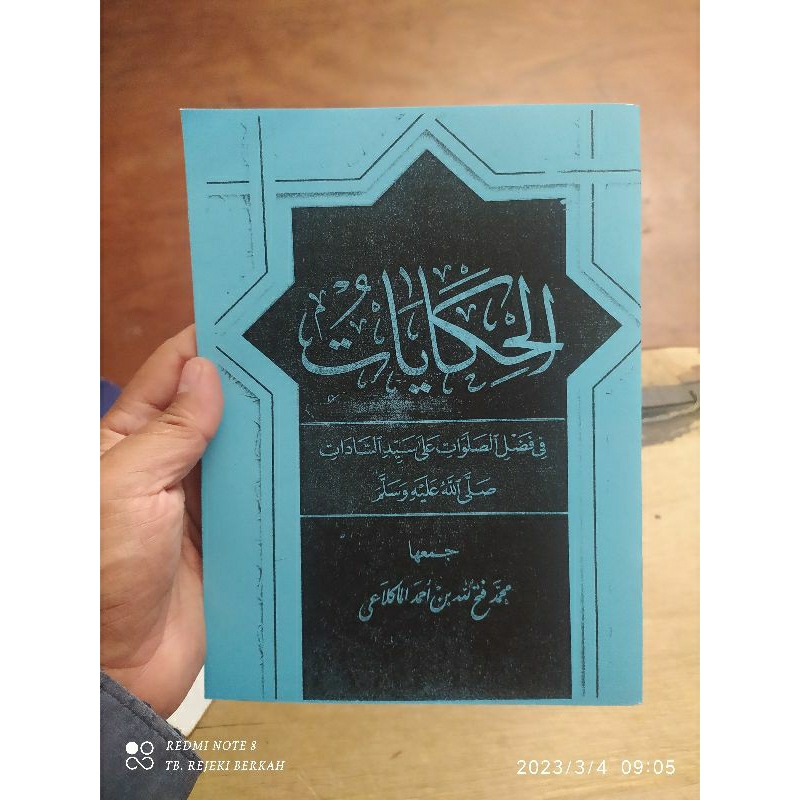 الحِكَايَاتُ
فِي فَضْلِ الصَّلَوَاتِ عَلَى سَيِّدِ السَّادَاتِ
صَلَّى اللهُ عَلَيْهِ وَسَلَّمَ
جمعها
محمّد فتح الله بن أحمد الماكلاعي
REDMI NOTE 8
TB. REJEKI BERKAH
2023/3/4 09:05